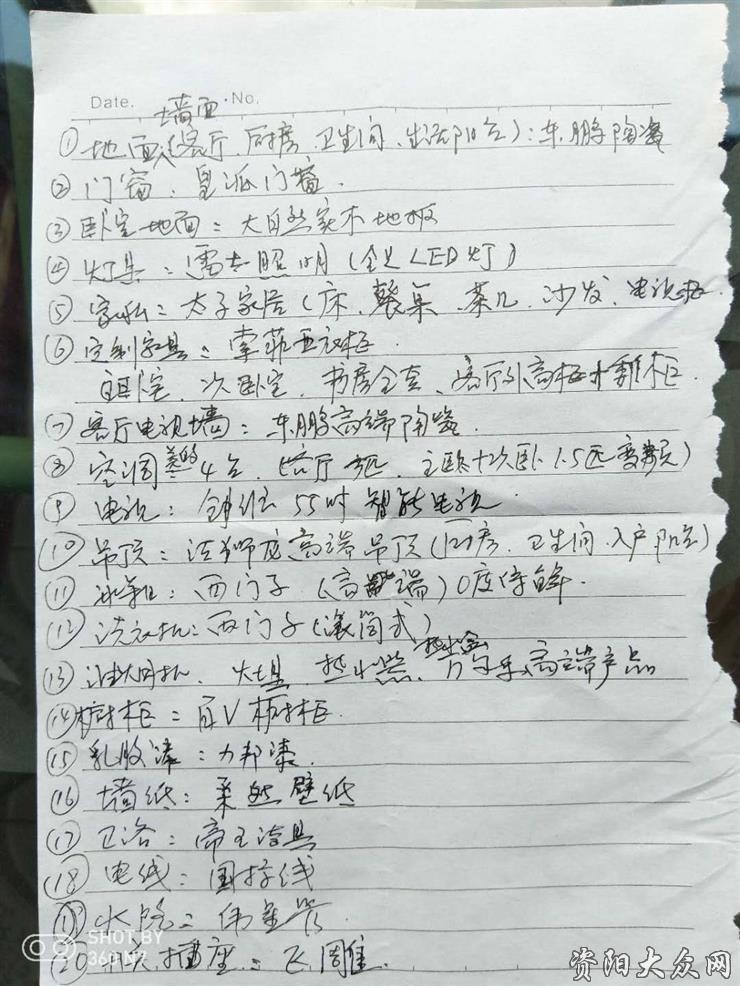 Date. 墙面 · No.
① 地面(客厅、厨房、卫生间、生活阳台):东鹏陶瓷
② 门窗、皇派门窗.
③ 卧室地面:大自然实木地板
④ 灯具:雷士照明(全是LED灯)
⑤ 家私:太子家居(床、餐桌、茶几、沙发、电视柜
⑥ 定制家具:索菲亚衣柜.
主卧室、次卧室、书房全套、客厅外高柜 鞋柜.
⑦ 客厅电视墙:东鹏高端陶瓷.
⑧ 空调 美的 4台、(客厅 、主卧+次卧1.5匹变频)
⑨ 电视: 55吋智能电视
⑩ 吊顶:法狮龙高端吊顶(厨房、卫生间、入户阳台)
⑪ 冰箱:西门子(高端)0度保鲜.
⑫ 洗衣机:西门子(滚筒式)
⑬ 油烟机、灶具、热水器、 万家乐高端产品
⑭ 橱柜: 橱柜.
⑮ 乳胶漆:立邦漆.
⑯ 墙纸:柔然壁纸
⑰ 卫浴:帝王洁具
⑱ 电线:国标线
⑲ 水管:伟星管
⑳ 开关、插座:飞雕.
SHOT BY
360 N7
资阳大众网